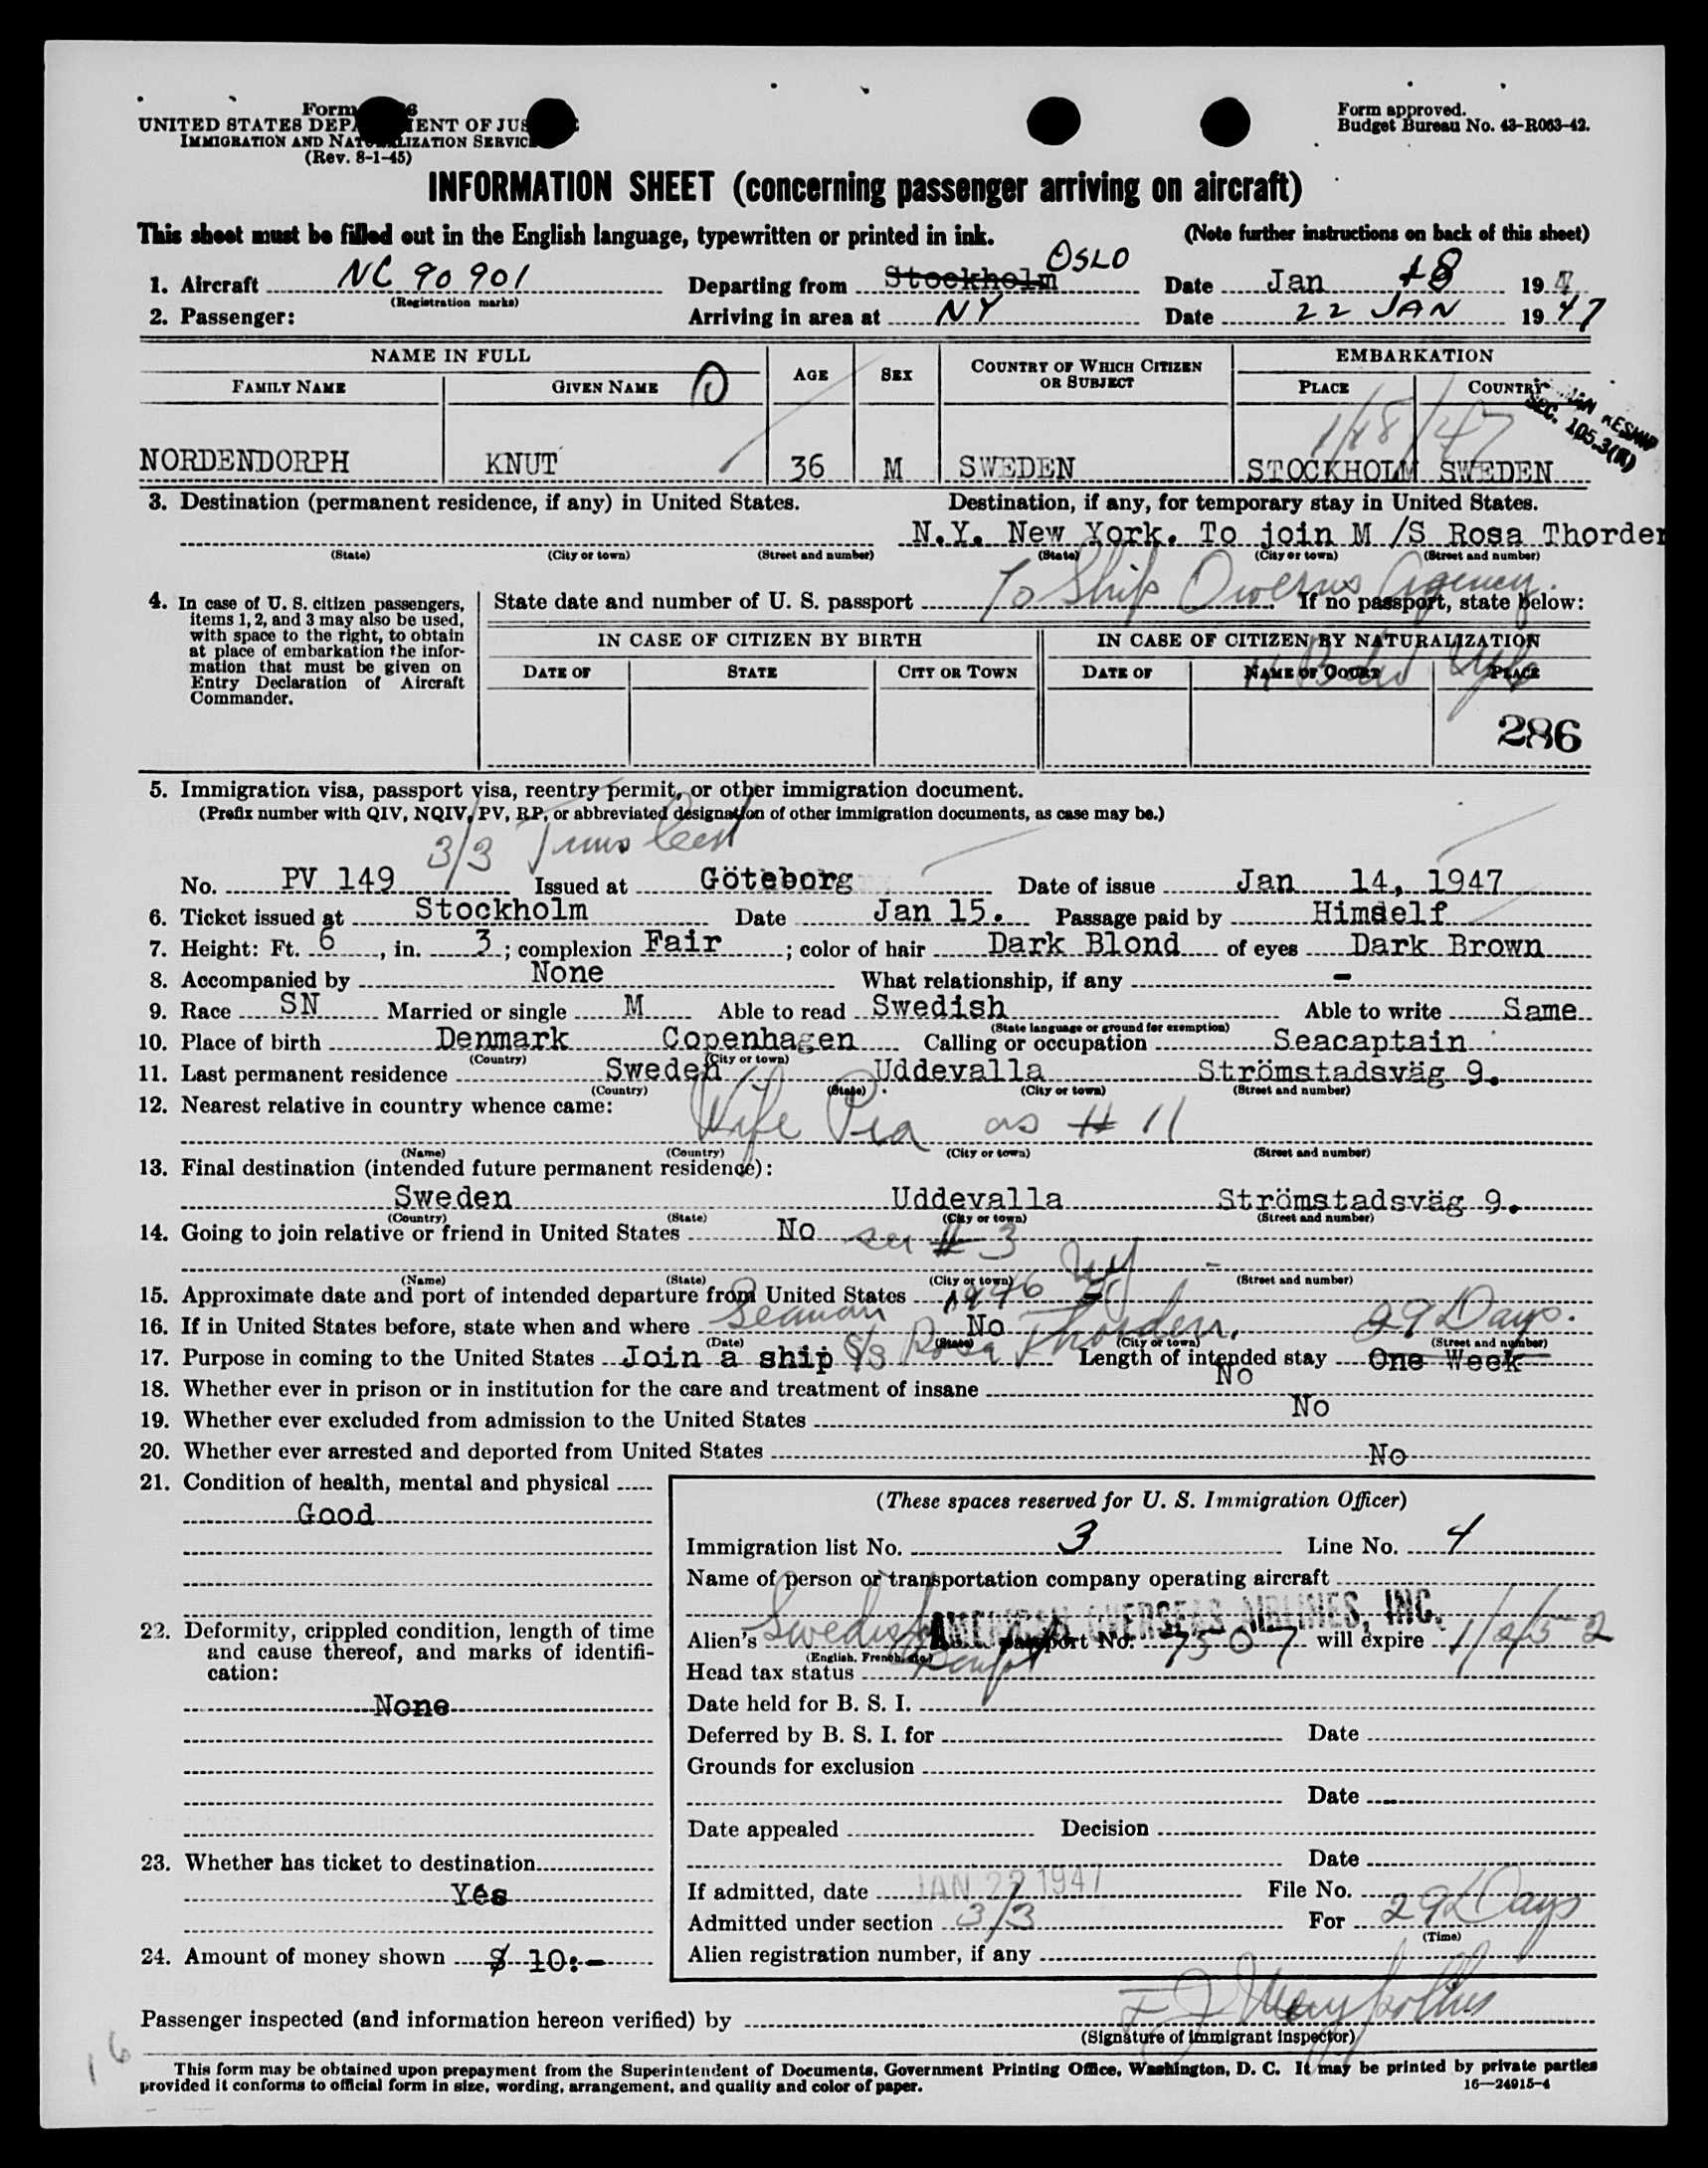 Form
UNITED STATES DEPARTMENT OF JUSTICE
IMMIGRATION AND NATURALIZATION SERVICE
(Rev. 8-1-45)
Form approved.
Budget Bureau No. 43-R063-42.
INFORMATION SHEET (concerning passenger arriving on aircraft)
This sheet must be filled out in the English language, typewritten or printed in ink. (Note further instructions on back of this sheet)
1. Aircraft NC 90901 Departing from Stockholm OSLO Date Jan 18 194
(Registration marks)
2. Passenger: Arriving in area at NY Date 22 JAN 1947
NAME IN FULL AGE SEX COUNTRY OF WHICH CITIZEN OR SUBJECT EMBARKATION
FAMILY NAME GIVEN NAME PLACE COUNTRY
SEC. 105.3(
1/18/47
NORDENDORPH KNUT 36 M SWEDEN STOCKHOLM SWEDEN
3. Destination (permanent residence, if any) in United States. Destination, if any, for temporary stay in United States.
N.Y. New York. To join M /S Rosa Thorden
(State) (City or town) (Street and number) (State) (City or town) (Street and number)
To Ship Owerns Agency.
4. In case of U. S. citizen passengers, items 1, 2, and 3 may also be used, with space to the right, to obtain at place of embarkation the information that must be given on Entry Declaration of Aircraft Commander.
State date and number of U. S. passport If no passport, state below:
IN CASE OF CITIZEN BY BIRTH IN CASE OF CITIZEN BY NATURALIZATION
DATE OF STATE CITY OR TOWN DATE OF NAME OF COURT PLACE
286
5. Immigration visa, passport visa, reentry permit, or other immigration document.
(Prefix number with QIV, NQIV, PV, RP, or abbreviated designation of other immigration documents, as case may be.)
3/3 Trans Cert
No. PV 149 Issued at Göteborg Date of issue Jan 14, 1947
6. Ticket issued at Stockholm Date Jan 15. Passage paid by Himself
7. Height: Ft. 6, in. 3; complexion Fair; color of hair Dark Blond of eyes Dark Brown
8. Accompanied by None What relationship, if any -
9. Race SN Married or single M Able to read Swedish Able to write Same
(State language or ground for exemption)
10. Place of birth Denmark Copenhagen Calling or occupation Seacaptain
(Country) (City or town)
11. Last permanent residence Sweden Uddevalla Strömstadsväg 9.
(Country) (State) (City or town) (Street and number)
12. Nearest relative in country whence came:
Wife Pia as # 11
(Name) (Country) (City or town) (Street and number)
13. Final destination (intended future permanent residence):
Sweden Uddevalla Strömstadsväg 9.
(Country) (State) (City or town) (Street and number)
14. Going to join relative or friend in United States No see # 3
(Name) (State) (City or town) (Street and number)
15. Approximate date and port of intended departure from United States -
16. If in United States before, state when and where Seaman No 1946 NY
(Date) (State) (City or town) (Street and number)
17. Purpose in coming to the United States Join a ship S/S Rosa Thorden, Length of intended stay One Week 29 Days.
18. Whether ever in prison or in institution for the care and treatment of insane No
19. Whether ever excluded from admission to the United States No
20. Whether ever arrested and deported from United States No
21. Condition of health, mental and physical
Good
22. Deformity, crippled condition, length of time and cause thereof, and marks of identification:
None
23. Whether has ticket to destination
Yes
24. Amount of money shown $ 10:-
(These spaces reserved for U. S. Immigration Officer)
Immigration list No. 3 Line No. 4
Name of person or transportation company operating aircraft
AMERICAN OVERSEAS AIRLINES, INC.
Alien's Swedish passport No. 7307 will expire 1/2/52
(English, French, etc.)
Head tax status
Date held for B. S. I.
Deferred by B. S. I. for Date
Grounds for exclusion
Date
Date appealed Decision
Date
If admitted, date JAN 22 1947 File No.
Admitted under section 3/3 For 29 Days
(Time)
Alien registration number, if any
Passenger inspected (and information hereon verified) by
(Signature of immigrant inspector)
16
This form may be obtained upon prepayment from the Superintendent of Documents, Government Printing Office, Washington, D. C. It may be printed by private parties
provided it conforms to official form in size, wording, arrangement, and quality and color of paper. 16—24915-4